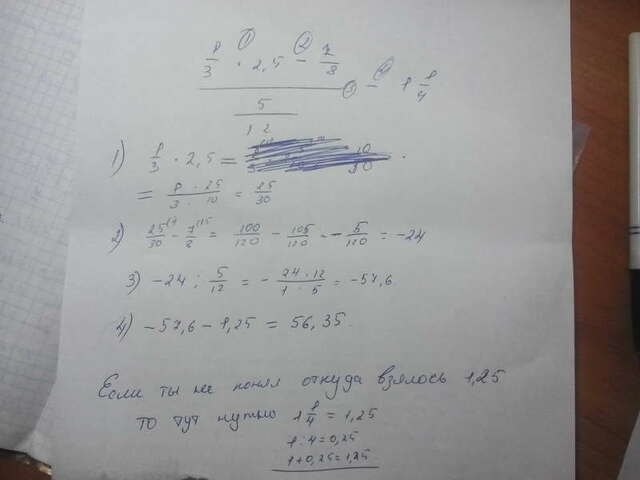 1/3 · 2,5 − 7/8
① ② ③ − ④ 1 1/4
5/12
1) 1/3 · 2,5 =
= 1 · 25 / 3 · 10 = 25/30
2) 25/30 − 7/8 = 100/120 − 105/120 = − 5/120 = −24
3) −24 : 5/12 = − 24 · 12 / 1 · 5 = −57,6
4) −57,6 − 1,25 = 56,35.
Если ты не понял откуда взялось 1,25
то тут нужно 1 1/4 = 1,25
1 : 4 = 0,25
1 + 0,25 = 1,25.